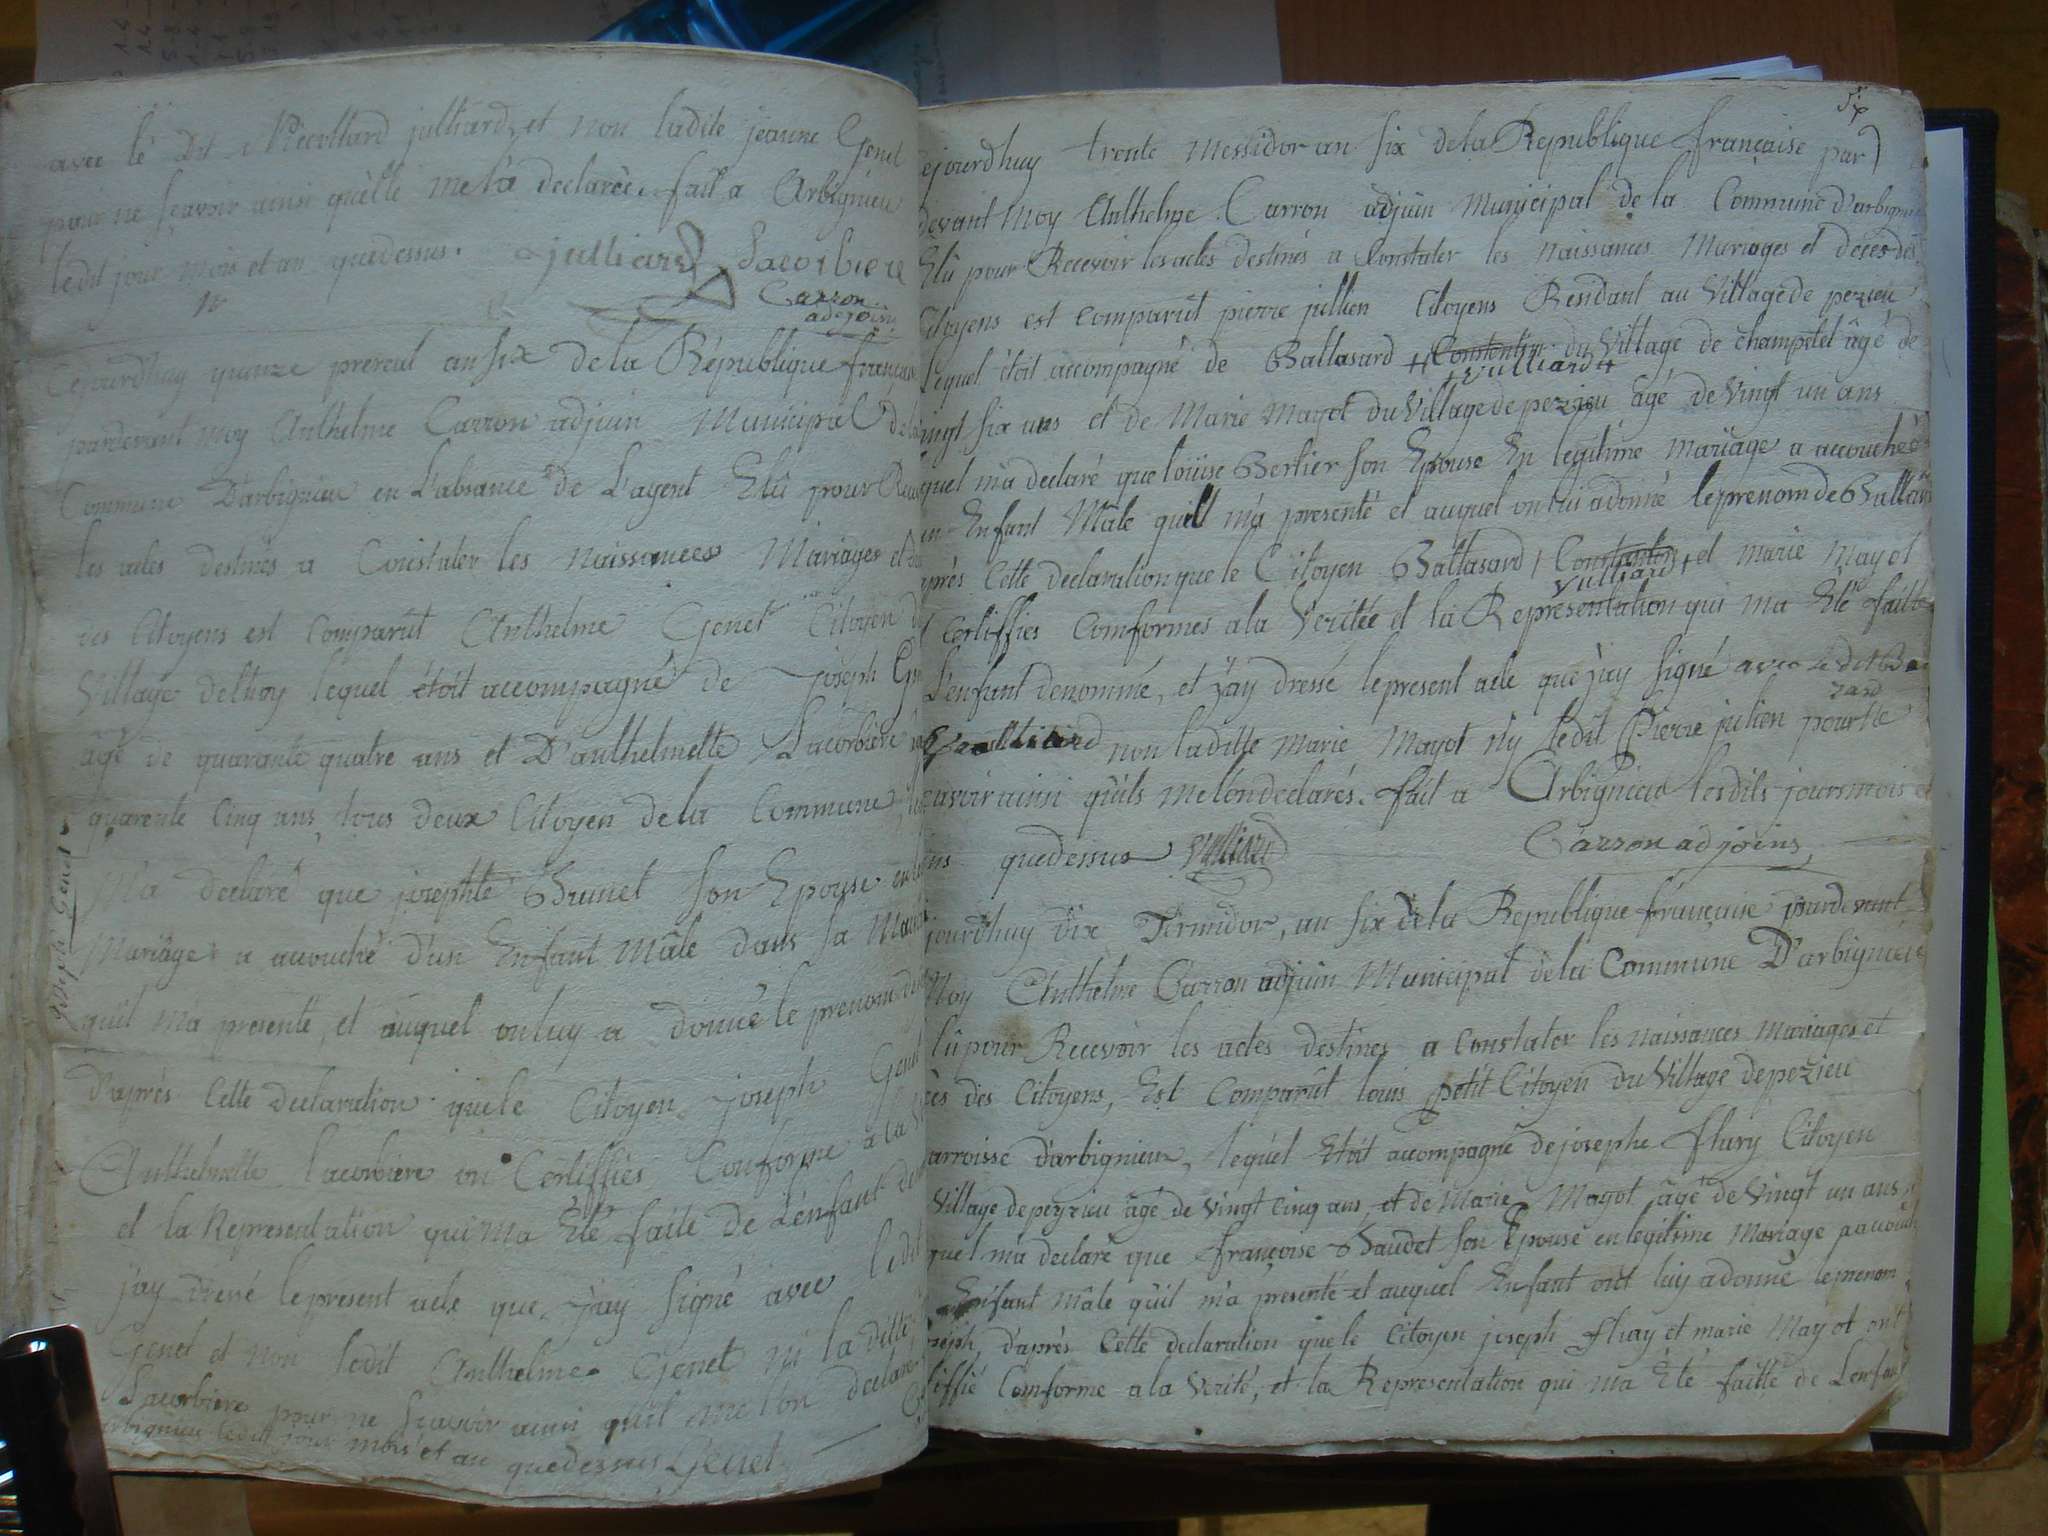 avec le dit Mecollard julliard, et non ladite jeanne Genet
pour ne scavoir ainsi quelle me la declarée. fait a Arbignieu
ledit jour mois et an quedessus. julliard Lacorbiere
Carron
adejoin
Cejourdhuy quinze prereal an six de la République française
pardevant moy Anthelme Carron adjuin Municipal de la
Commune D'arbignieu en L'absance de L'agent Elû pour
les actes destinés a Constater les naissances Mariages et
des Citoyens est comparût Anthelme Genet Citoyen
Village delhoy lequel étoit accompagné de joseph
âgé de quarante quatre ans et D'anthelmette Lacorbiere
quarente cinq ans, tous deux Citoyen de la Commune,
M'a declaré que josephte Brunet son Epouse en
Mariage a acouché d'un Enfant mâle dans sa
quil ma presenté, et auquel on luy a donné le prenom
d'après Cette declaration que le Citoyen joseph Genet
Anthelmette lacorbiere on Certiffiés Conforme a la
et la Representation qui ma Eté faite de L'enfant
j'ay dressé le present acte que j'ay signé avec ledit
Genet et non ledit Anthelme Genet ni la ditte
Lacorbiere pour ne scavoir ainsi quil me lon declaré
arbignieu ledit jour mois et an quedessus Genet
joseph Genet
Six
ejourdhuy trente Messidor an six de la Republique française par
devant Moy Anthelme Carron adjuin Municipal de la Commune D'arbignieu
Elû pour Recevoir les actes destinés a Constater les naissances Mariages et decès des
Citoyens est comparût pierre jullien Citoyens Rendant au Village de pezieu
Lequel étoit accompagné de Baltasard + Constentin du Village de champtel âgé de
+ vulliard +
vingt six ans et de Marie Mayot du Village de pezieu âgé de vingt un ans
quel m'a declaré que loüise Berlier son Epouse En legitime Mariage a accouchée
un Enfant Mâle quil m'a presenté et auquel on lui a donné le prenom de
après Cette declaration que le Citoyen Baltasard + Constantin et marie mayot
Vulliard +
Certiffies Comformes a la Veritée et la Representation qui ma Eté faitte
L'enfant denommé, et j'ay dressé le present acte que j'ay signé avec le dit
zard
non laditte Marie Mayot ny ledit Pierre julien pour ne
scavoir ainsi quils me lon declarés. fait a Arbignieu lesdits jours mois
ans quedessus Vulliard Carron adjoins
jourdhuy dix Termidor, an six de la Republique française pardevant
Moy Anthelme Carron adjuin Municipal de la Commune D'arbignieu
lû pour Recevoir les actes destinés a Constater les naissances Mariages et
cès des Citoyens, Est Comparût louis petit Citoyen du Village de pezieu
arroisse d'arbignieux, lequel Etoit accompagné de josephe flury Citoyen
Village de peyzieu âgé de vingt cinq ans, et de Marie Mayot âgé de vingt un ans
quel ma declaré que françoise Baudet son Epouse en legitime Mariage
Enfant mâle quil m'a presenté et auquel Enfant ont luy a donné le prenom
oseph, d'après Cette declaration que le Citoyen joseph flury et marie Mayot ont
tiffié Comforme a la Verité, et la Representation qui ma Eté faitte de Lenfan